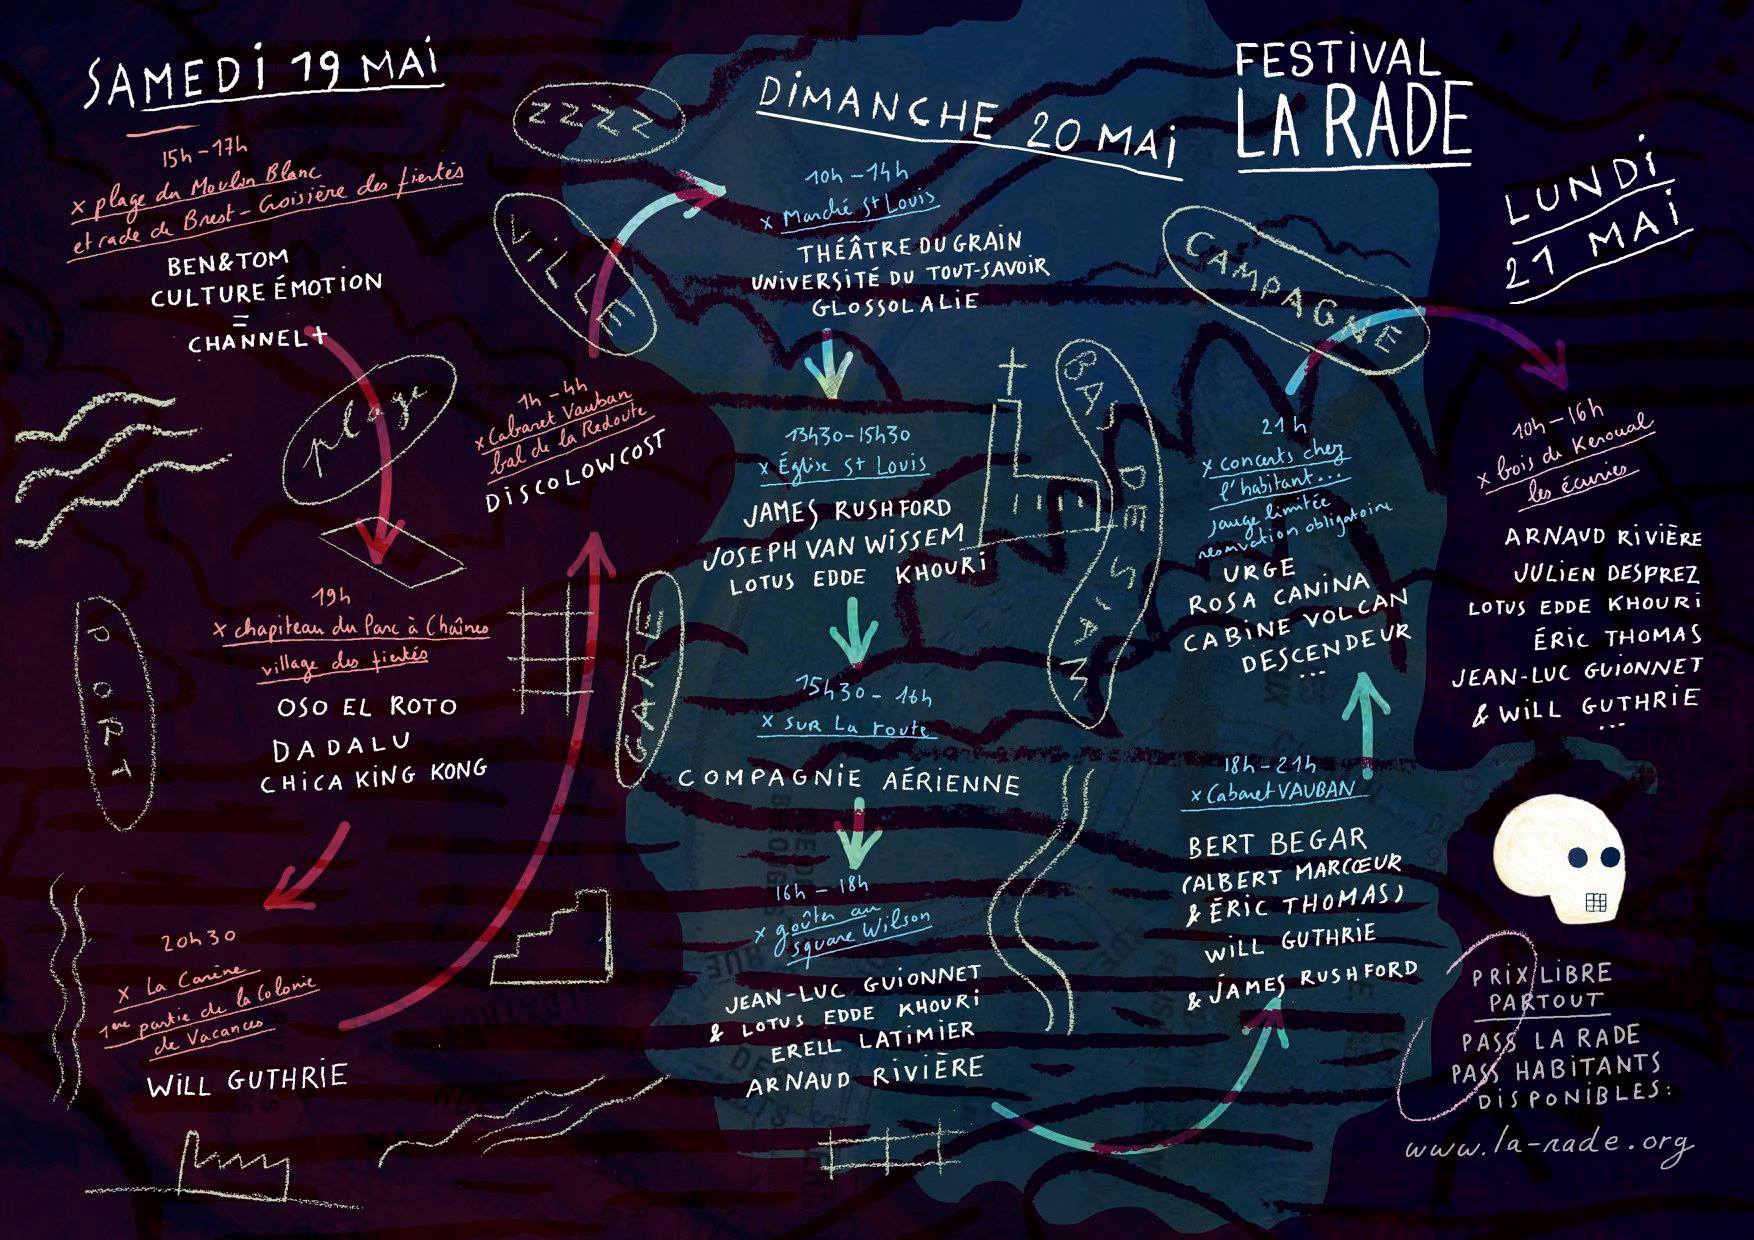 SAMEDI 19 MAI
15h - 17h
x plage du Moulin Blanc
et rade de Brest - Croisière des fiertés
BEN&TOM
CULTURE ÉMOTION
=
CHANNEL+
plage
19h
x chapiteau du Parc à Chaînes
village des fiertés
OSO EL ROTO
DADALU
CHICA KING KONG
PORT
20h30
x La Carène
1ère partie de la Colonie
de Vacances
WILL GUTHRIE
GARE
1h - 4h
x Cabaret Vauban
bal de la Redoute
DISCOLOWCOST
VILLE
ZZZZ
DIMANCHE 20 MAI
10h - 14h
x Marché St Louis
THÉÂTRE DU GRAIN
UNIVERSITÉ DU TOUT-SAVOIR
GLOSSOLALIE
13h30 - 15h30
x Église St Louis
JAMES RUSHFORD
JOSEPH VAN WISSEM
LOTUS EDDE KHOURI
15h30 - 16h
x SUR La route
COMPAGNIE AÉRIENNE
16h - 18h
x goûter au
square Wilson
JEAN-LUC GUIONNET
& LOTUS EDDE KHOURI
ERELL LATIMIER
ARNAUD RIVIÈRE
BAS DE SIAM
18h - 21h
x Cabaret VAUBAN
BERT BEGAR
(ALBERT MARCŒUR
& ÉRIC THOMAS)
WILL GUTHRIE
& JAMES RUSHFORD
21h
x concerts chez
l'habitant...
jauge limitée
réservation obligatoire
URGE
ROSA CANINA
CABINE VOLCAN
DESCENDEUR
...
CAMPAGNE
FESTIVAL
LA RADE
LUNDI
21 MAI
10h - 16h
x bois de Keroual
les écuries
ARNAUD RIVIÈRE
JULIEN DESPREZ
LOTUS EDDE KHOURI
ÉRIC THOMAS
JEAN-LUC GUIONNET
& WILL GUTHRIE
...
PRIX LIBRE
PARTOUT
PASS LA RADE
PASS HABITANTS
DISPONIBLES:
www.la-rade.org